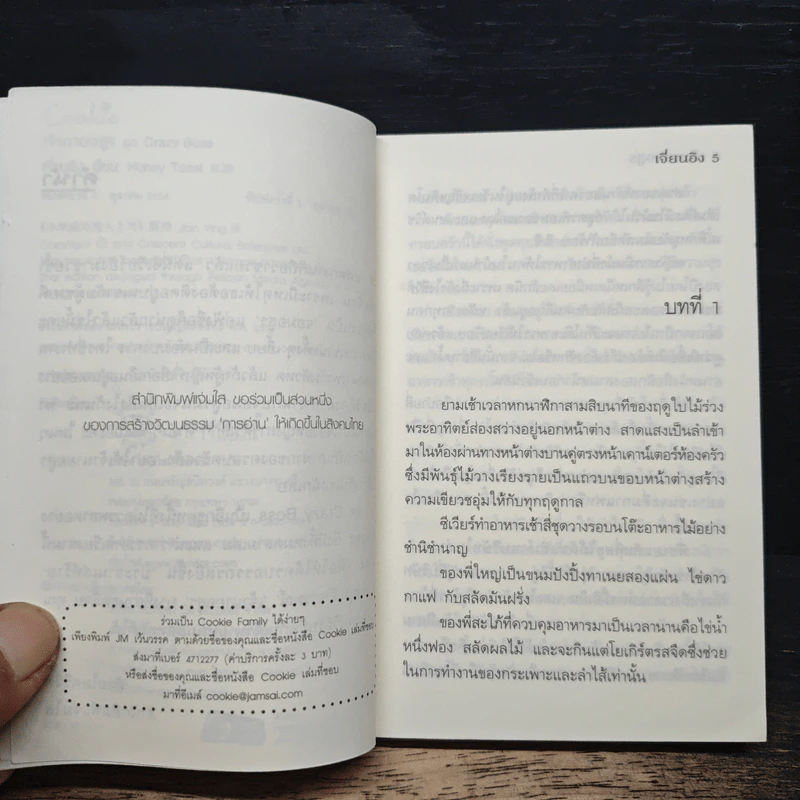 สำนักพิมพ์แจ่มใส ขอร่วมเป็นส่วนหนึ่ง
ของการสร้างวัฒนธรรม 'การอ่าน' ให้เกิดขึ้นในสังคมไทย
ร่วมเป็น Cookie Family ได้ง่ายๆ
เพียงพิมพ์ JM เว้นวรรค ตามด้วยชื่อของคุณและชื่อหนังสือ Cookie เล่มที่ชอบ
ส่งมาที่เบอร์ 4712277 (ค่าบริการครั้งละ 3 บาท)
หรือส่งชื่อของคุณและชื่อหนังสือ Cookie เล่มที่ชอบ
มาที่อีเมล์ cookie@jamsai.com
เจี่ยนอิง 5
บทที่ 1
ยามเช้าเวลาหกนาฬิกาสามสิบนาทีของฤดูใบไม้ร่วง
พระอาทิตย์ส่องสว่างอยู่นอกหน้าต่าง สาดแสงเป็นลำเข้า
มาในห้องผ่านทางหน้าต่างบานคู่ตรงหน้าเคาน์เตอร์ห้องครัว
ซึ่งมีพันธุ์ไม้วางเรียงรายเป็นแถวบนขอบหน้าต่างสร้าง
ความเขียวชอุ่มให้กับทุกฤดูกาล
ซีเวียร์ทำอาหารเช้าสี่ชุดวางรอบนโต๊ะอาหารไม้อย่าง
ชำนิชำนาญ
ของพี่ใหญ่เป็นขนมปังปิ้งทาเนยสองแผ่น ไข่ดาว
กาแฟ กับสลัดมันฝรั่ง
ของพี่สะใภ้ที่ควบคุมอาหารมาเป็นเวลานานคือไข่น้ำ
หนึ่งฟอง สลัดผลไม้ และจะกินแต่โยเกิร์ตรสจืดซึ่งช่วย
ในการทำงานของกระเพาะและลำไส้เท่านั้น